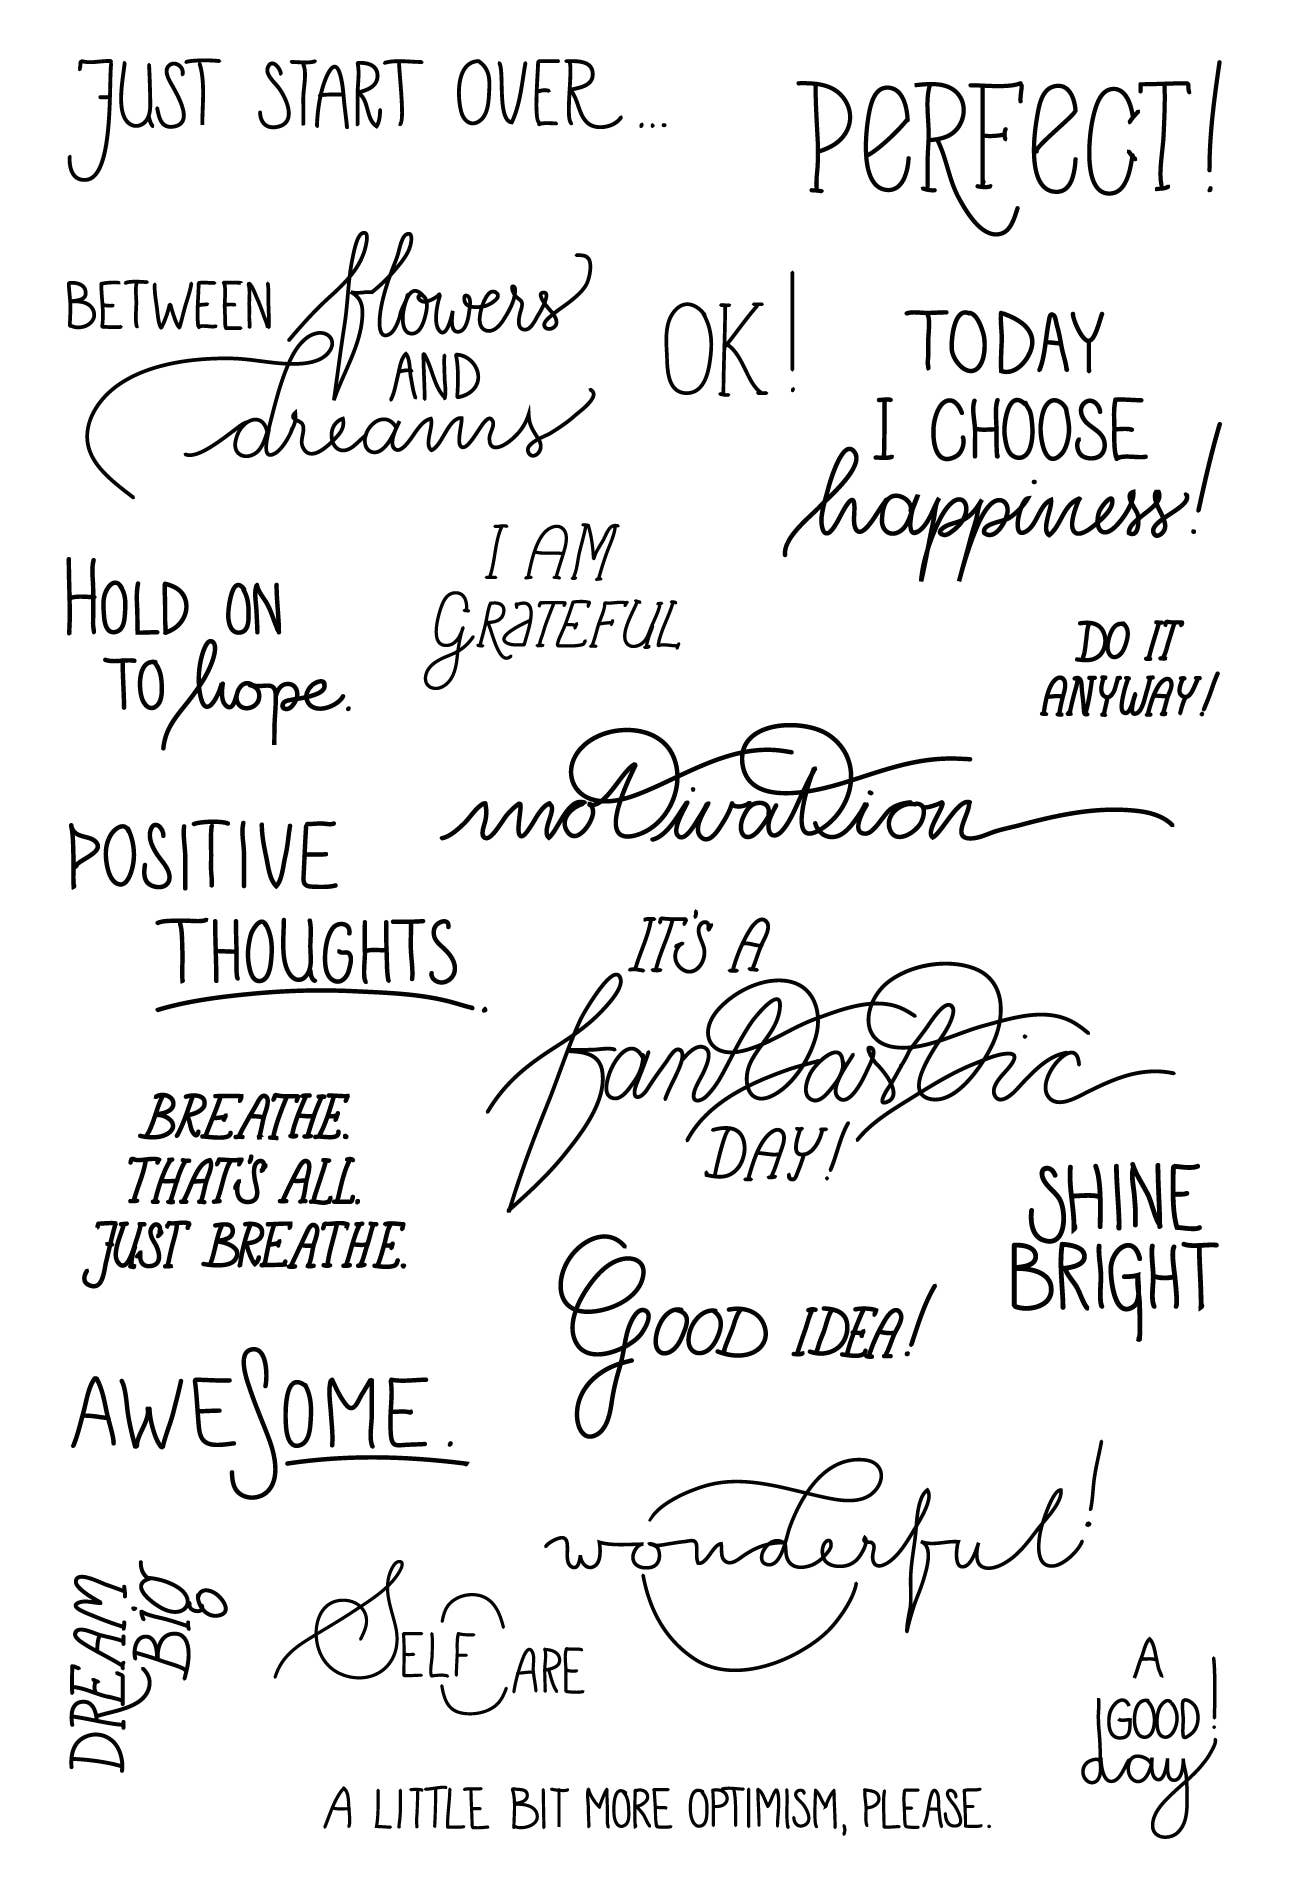 JUST START OVER...
PeRFeCT!
BETWEEN flowers
AND
dreams
OK!
TODAY
I CHOOSE
happiness!
HOLD ON
TO hope.
I AM
GRaTEFUL
DO IT
ANYWAY!
motivation
POSITIVE
THOUGHTS.
IT'S A
fantastic
DAY!
BREATHE.
THAT'S ALL.
JUST BREATHE.
SHINE
BRIGHT
GOOD IDEA!
AWESOME.
wonderful!
DREAM
Big
SELF CARE
A
GOOD!
day
A LITTLE BIT MORE OPTIMISM, PLEASE.